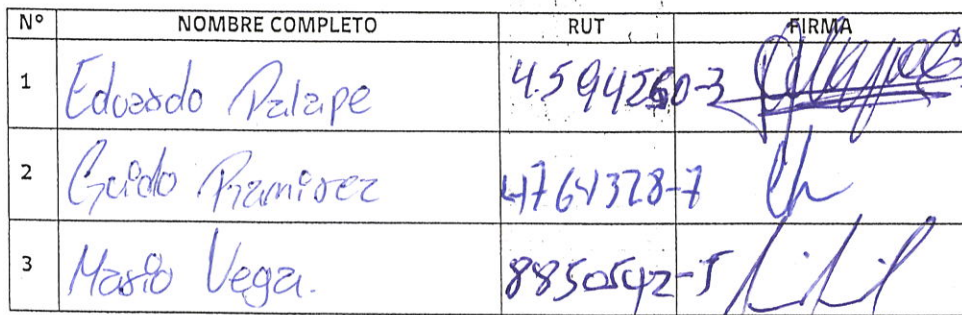 N° NOMBRE COMPLETO RUT FIRMA
1 Eduardo Palape 4.594260-3
2 Guido Ramirez 4764328-7
3 Mario Vega. 8850542-5